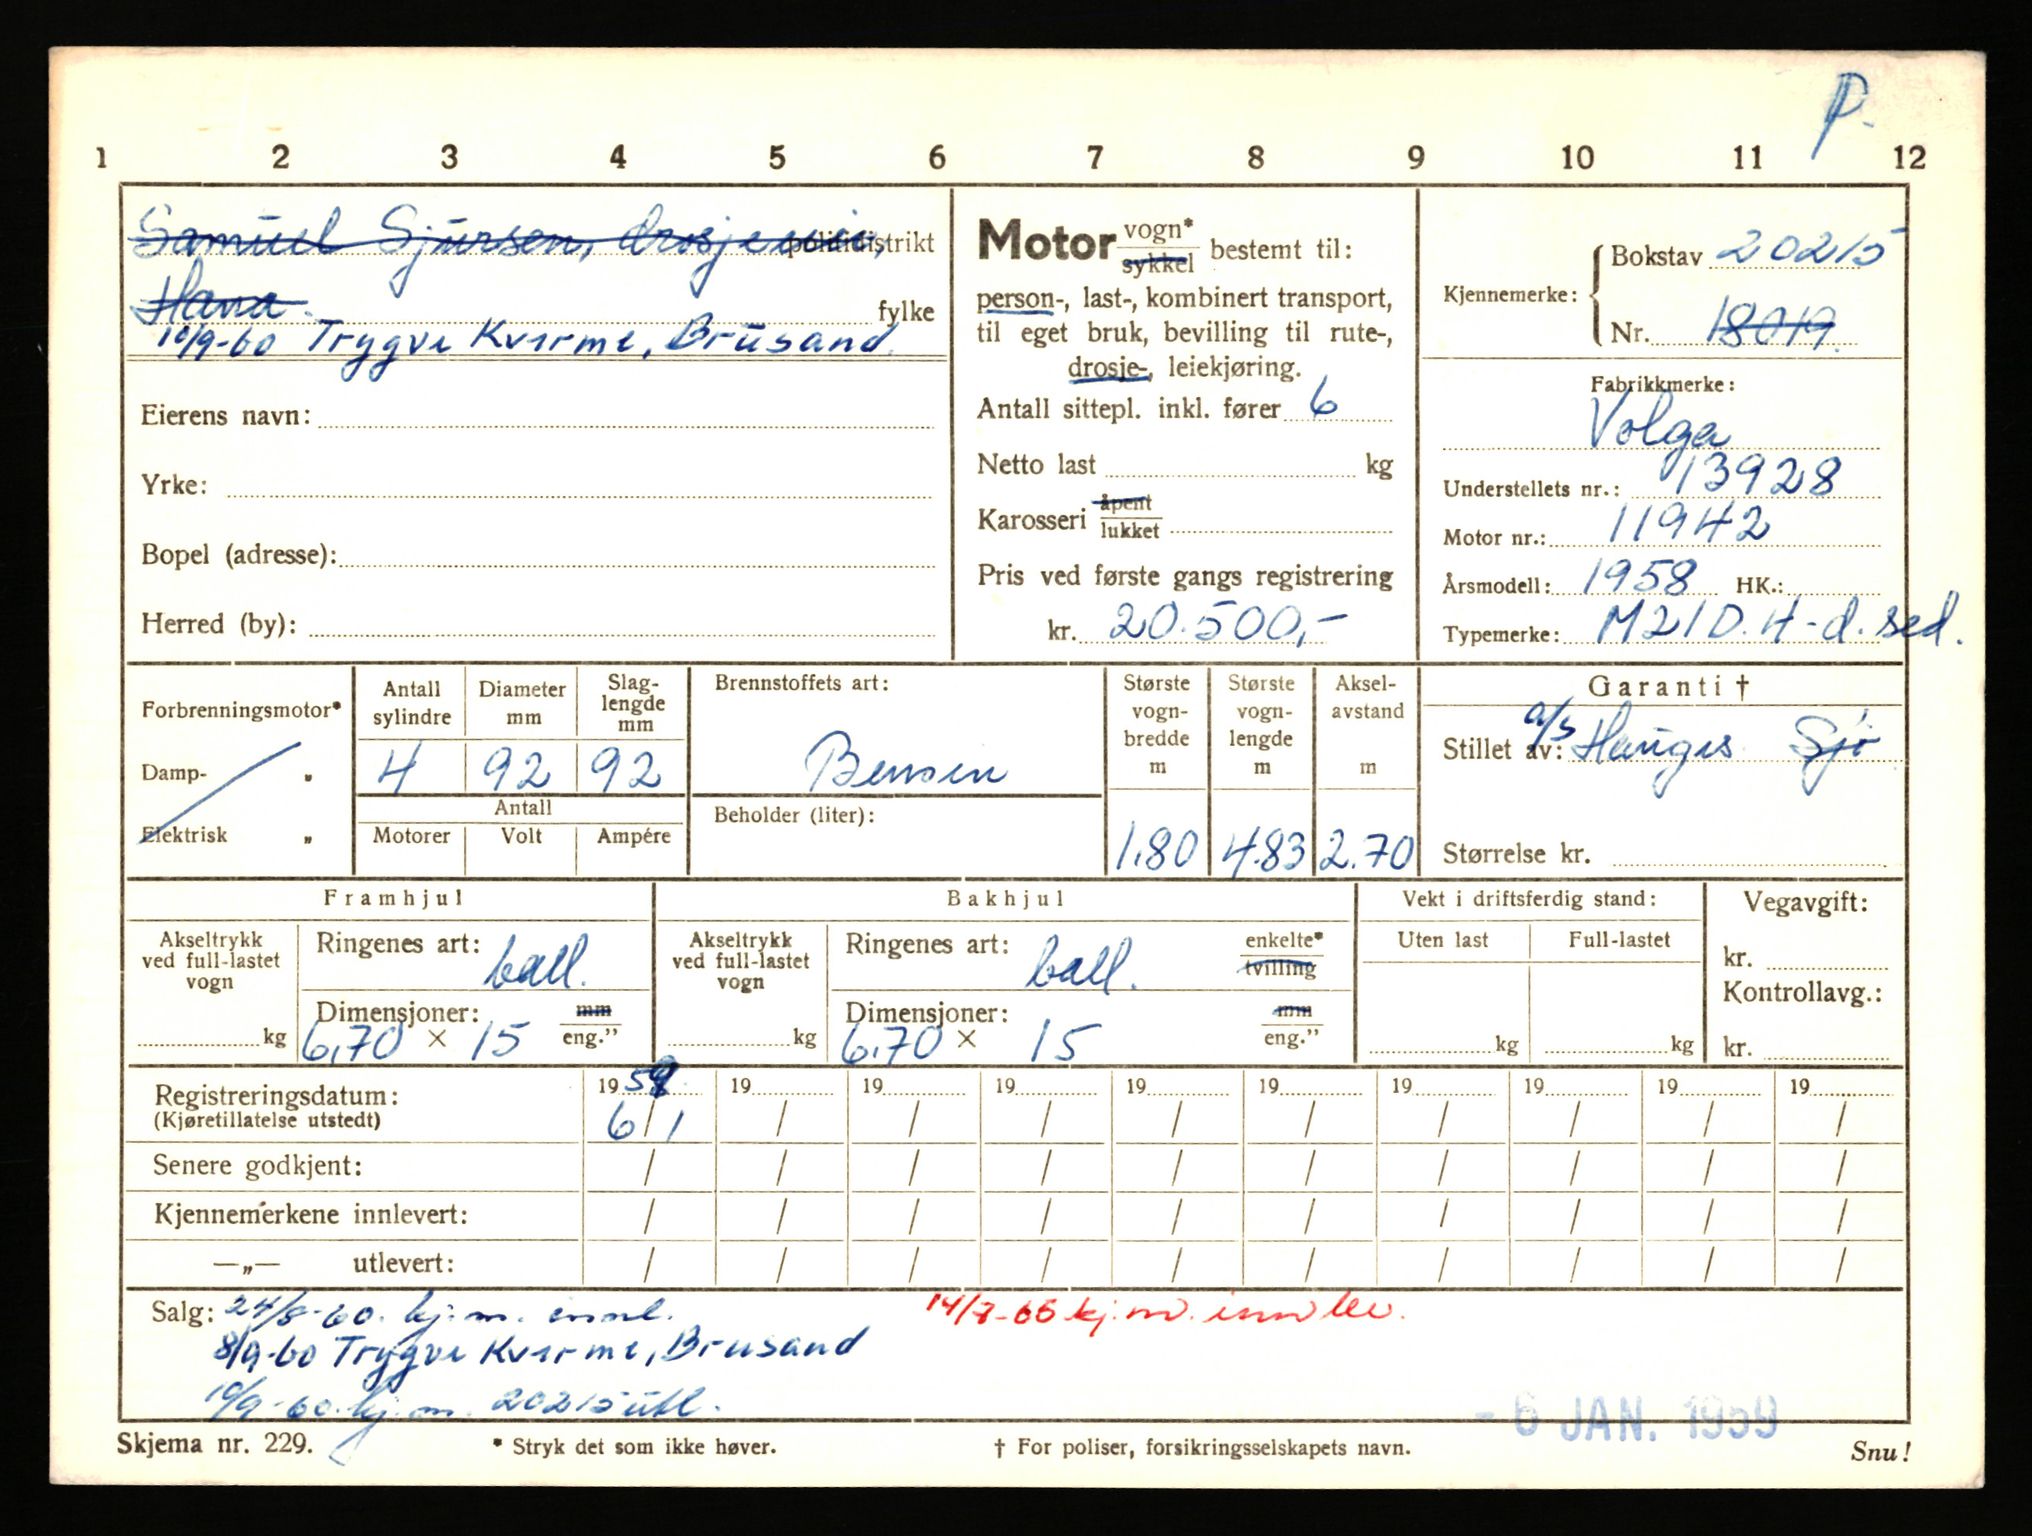 P.
1 2 3 4 5 6 7 8 9 10 11 12
Samuel Sjursen, drosjeeier, politidistrikt
Hana. fylke
10/9-60 Trygve Kverme, Brusand.
Eierens navn:
Yrke:
Bopel (adresse):
Herred (by):
Motor vogn* sykkel bestemt til:
person-, last-, kombinert transport,
til eget bruk, bevilling til rute-,
drosje-, leiekjøring.
Antall sittepl. inkl. fører 6
Netto last kg
Karosseri åpent lukket
Pris ved første gangs registrering
kr. 20.500,-
Kjennemerke: Bokstav 20215
Nr. 18019.
Fabrikkmerke:
Volga
Understellets nr.: 13928
Motor nr.: 11942
Årsmodell: 1958 HK.:
Typemerke: M21D. 4-d. sed.
Forbrenningsmotor*
Damp- „
Elektrisk „
Antall sylindre 4
Diameter mm 92
Slag-lengde mm 92
Antall
Motorer Volt Ampére
Brennstoffets art:
Bensin
Beholder (liter):
Største vogn-bredde m 1.80
Største vogn-lengde m 4.83
Aksel-avstand m 2.70
Garanti †
Stillet av: a/s Hauges Sjø
Størrelse kr.
Framhjul
Akseltrykk ved full-lastet vogn kg
Ringenes art: ball.
Dimensjoner: mm
6,70 × 15 eng.”
Bakhjul
Akseltrykk ved full-lastet vogn kg
Ringenes art: ball. enkelte* tvilling
Dimensjoner: mm
6.70 × 15 eng.”
Vekt i driftsferdig stand:
Uten last Full-lastet
kg kg
Vegavgift:
kr.
Kontrollavg.:
kr.
Registreringsdatum: 1959 19 19 19 19 19 19 19 19 19
(Kjøretillatelse utstedt) 6/1 / / / / / / / / /
Senere godkjent: / / / / / / / / / /
Kjennemerkene innlevert: / / / / / / / / / /
—„— utlevert: / / / / / / / / / /
Salg: 24/8-60. kj.m. innl. 14/7-65 kj.m. innlev.
8/9-60 Trygve Kverme, Brusand
10/9-60. kj.m. 20215 utl.
- 6 JAN. 1959
Skjema nr. 229. * Stryk det som ikke høver. † For poliser, forsikringsselskapets navn. Snu!